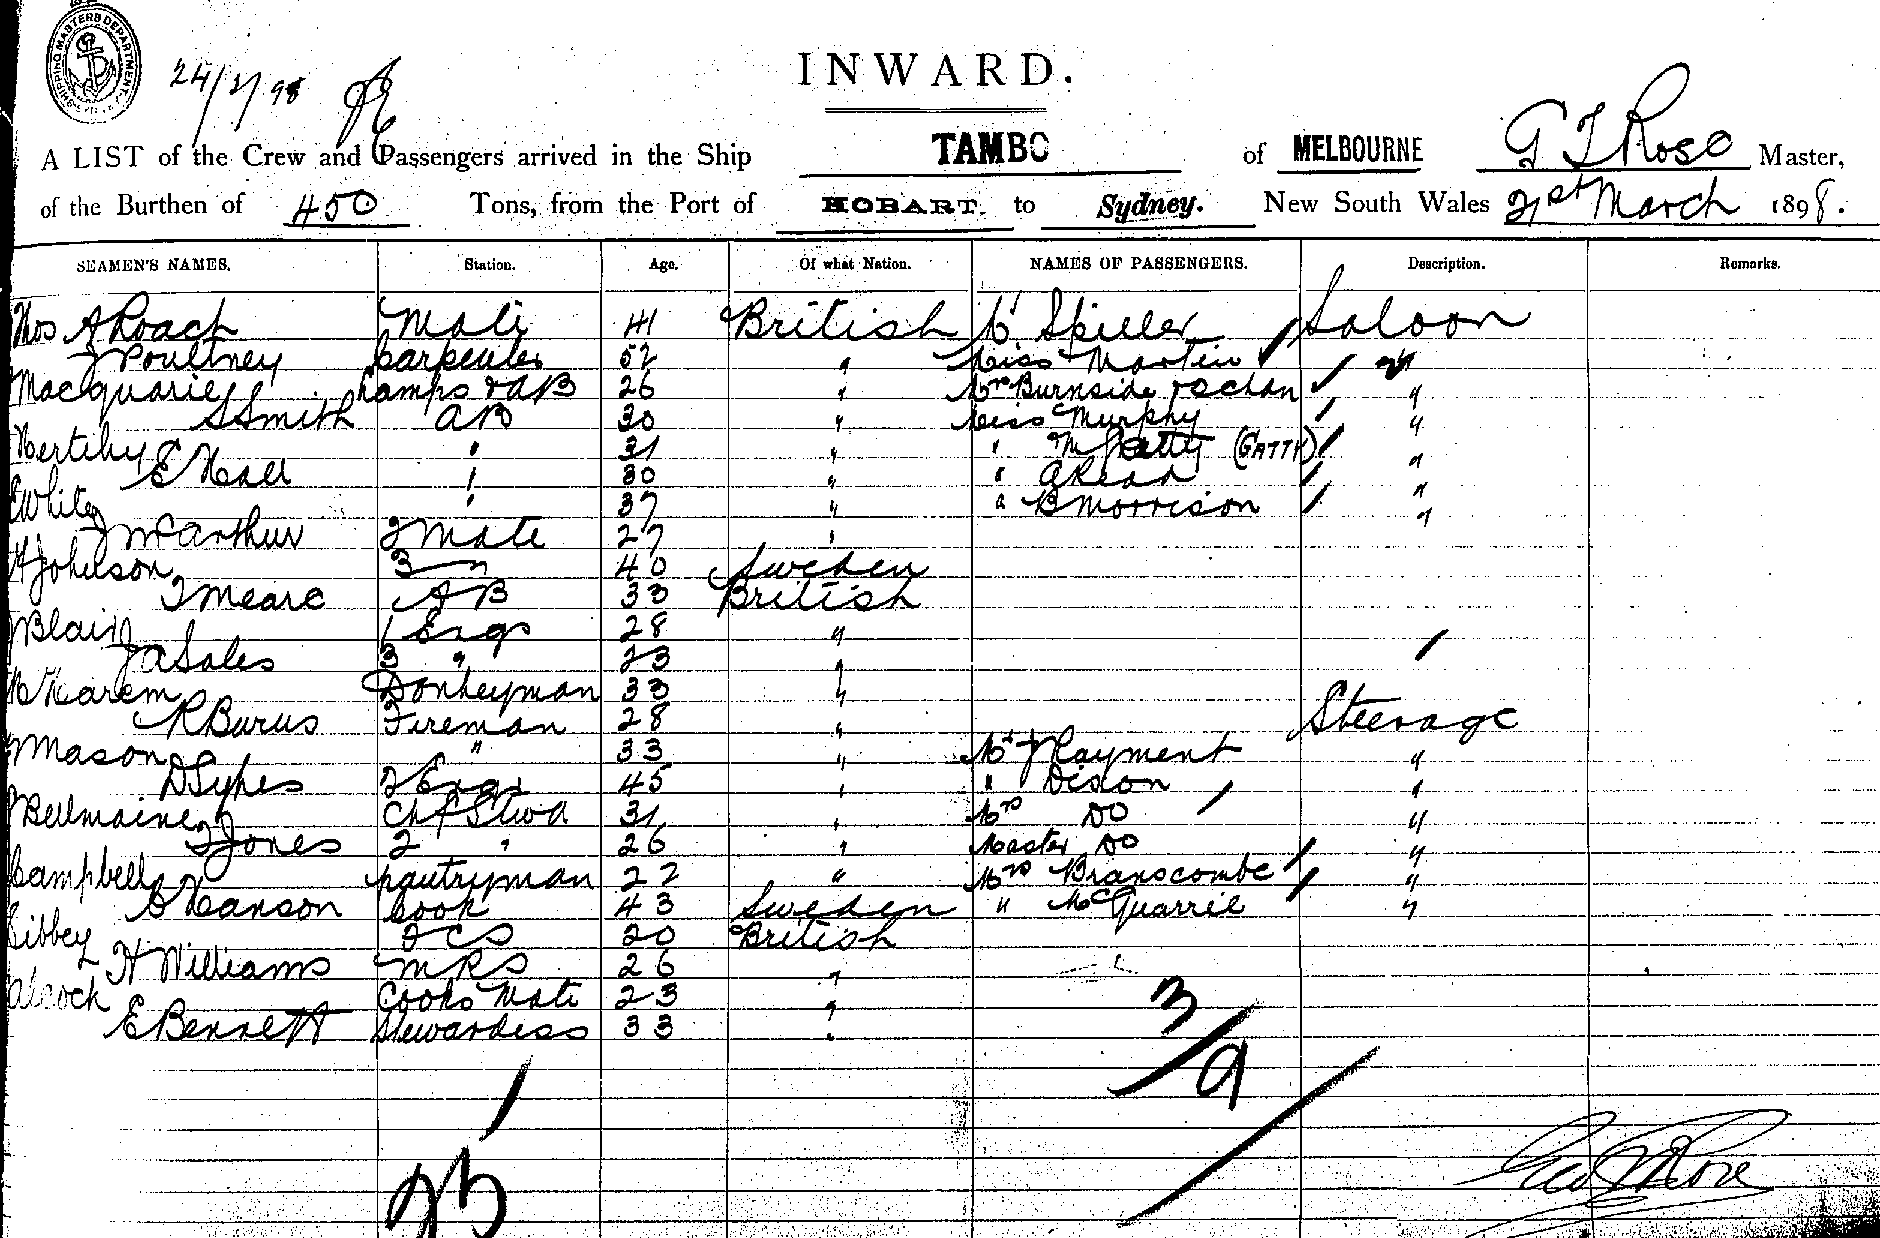 SHIPPING MASTERS DEPARTMENT
24/3/98
INWARD.
A LIST of the Crew and Passengers arrived in the Ship TAMBO of MELBOURNE G T Rose Master,
of the Burthen of 450 Tons, from the Port of HOBART. to Sydney. New South Wales 21st March 1898.
SEAMEN'S NAMES. Station. Age. Of what Nation. NAMES OF PASSENGERS. Description. Remarks.
Thos A Roach Mate 41 British Mr Spiller Saloon
J Poultney Carpenter 52 " Miss Martin "
Macquarie Lamps & AB 26 " Mrs Burnside "
S Smith AB 30 " Miss Murphy "
" 31 " " M (GATTY) "
E Hall " 30 " " A Read "
White " 37 " " B Morrison "
J McArthur 2 Mate 27 "
A Johnson 3 " 40 Sweden
T Meare AB 33 British
J Blair 1 Engr 28 "
J A Sales 3 " 23 "
Karem Donkeyman 33 "
R Burns Fireman 28 " Steerage
J Mason " 33 " Mr J Rayment "
D Sykes 2 Engr 45 " " Dixon "
Bellmaine Chf Stwd 31 " Mrs Do "
T Jones 2 " 26 " Master Do "
Campbell pantryman 22 " Mrs Branscombe "
C Hanson Cook 43 Sweden " McQuarrie "
Sibbey 2CS 20 British
H Williams MRS 26 "
Alcock Cooks Mate 23 "
E Bennett Stewardess 33 "
3/9
25
Geo T Rose